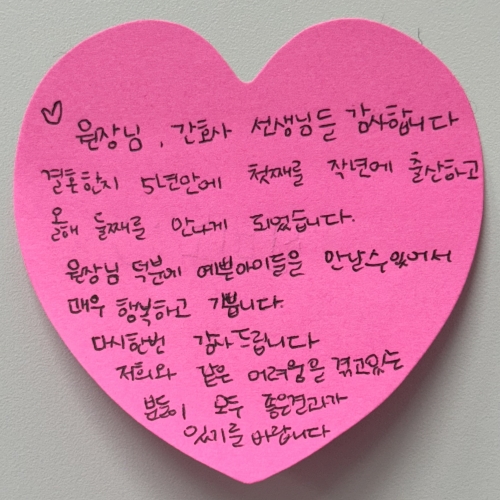 ♡ 원장님, 간호사 선생님들 감사합니다
결혼한지 5년만에 첫째를 작년에 출산하고
올해 둘째를 만나게 되었습니다.
원장님 덕분에 예쁜아이들을 만날수있어서
매우 행복하고 기쁩니다.
다시한번 감사드립니다
저희와 같은 어려움을 겪고있는
분들이 모두 좋은결과가
있기를 바랍니다